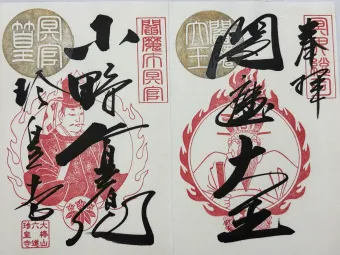 奉拝
閻魔大王
閻魔大王
小野篁卿
閻魔大冥官
冥官
篁
珍皇寺
大椿山
六道
珍皇寺